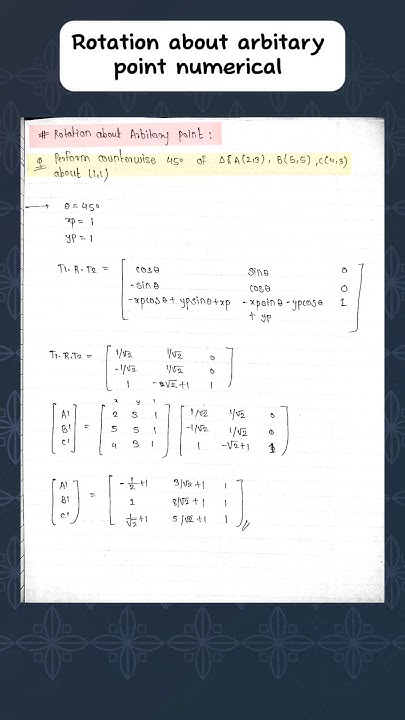 Rotation about arbitary
point numerical
# Rotation about Arbitary Point :
Q Perform counterwise 45° of Δℓ A(2,3), B(5,5), C(4,3)
about (1,1)
→ θ = 45°
xp = 1
yp = 1
T1. R. T2 = [ cosθ sinθ 0
-sinθ cosθ 0
-xpcosθ + ypsinθ + xp -xpsinθ - ypcosθ + yp 1 ]
T1. R. T2 = [ 1/√2 1/√2 0
-1/√2 1/√2 0
1 -√2+1 1 ]
x y 1
[ A' B' C' ] = [ 2 3 1
5 5 1
4 3 1 ] [ 1/√2 1/√2 0
-1/√2 1/√2 0
1 -√2+1 1 ]
[ A' B' C' ] = [ -1/2+1 3/√2+1 1
1 8/√2+1 1
1/√2+1 5/√2+1 1 ]